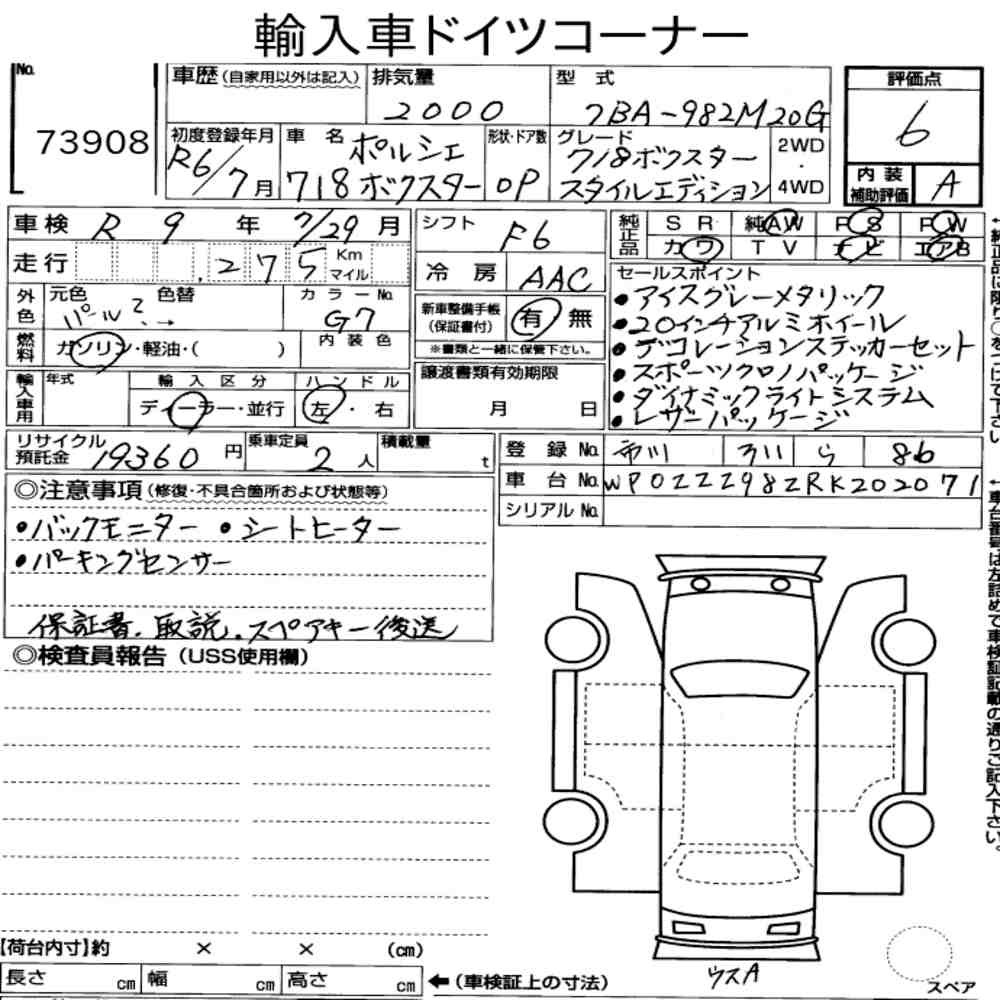 輸入車ドイツコーナー
No. 73908
車歴(自家用以外は記入)
排気量 2000
型式 7BA-982M20G
評価点 6
初度登録年月 R6/7月
車名 ポルシェ 718ボクスター
形状・ドア数 OP
グレード 718ボクスター スタイルエディション
2WD・4WD
内装補助評価 A
車検 R 9年 7/29月
シフト F6
純正品 SR 純AW PS PW
カワ TV ナビ エアB
走行 ,275 Km マイル
冷房 AAC
外色 元色 パール 色替 →
カラーNo. G7
内装色
新車整備手帳(保証書付) 有 無
※書類と一緒に保管下さい。
燃料 ガソリン・軽油・( )
輸入車用 年式
輸入区分 ディーラー・並行
ハンドル 左・右
譲渡書類有効期限
月 日
セールスポイント
・アイスグレーメタリック
・20インチアルミホイール
・デコレーションステッカーセット
・スポーツクロノパッケージ
・ダイナミックライトシステム
・レザーパッケージ
リサイクル預託金 19360円
乗車定員 2人
積載量 t
登録No. 市川 311 ら 86
車台No. WP0ZZZ98ZRK202071
シリアルNo.
◎注意事項(修復・不具合箇所および状態等)
・バックモニター ・シートヒーター
・パーキングセンサー
保証書.取説.スペアキー後送
◎検査員報告(USS使用欄)
【荷台内寸】約 × × (cm)
長さ cm 幅 cm 高さ cm
←(車検証上の寸法)
ウスA
スペア
←車台番号は左詰めで車検証記載の通りご記入下さい。